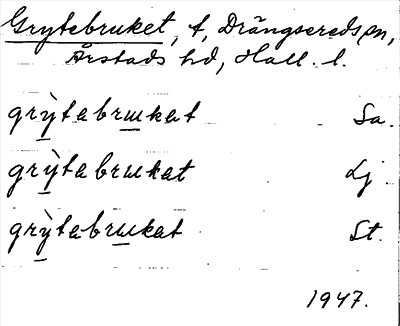 Grytebruket, t, Drängsereds sn,
Årstads hd, Hall. l.
grỳtabrukat Sa.
grỳtabrukat Lj
grỳtabrukat St.
1947.